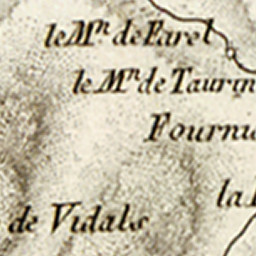 le Mⁿ de Farel
le Mⁿ de Taurin
Fourni
la
de Vidals